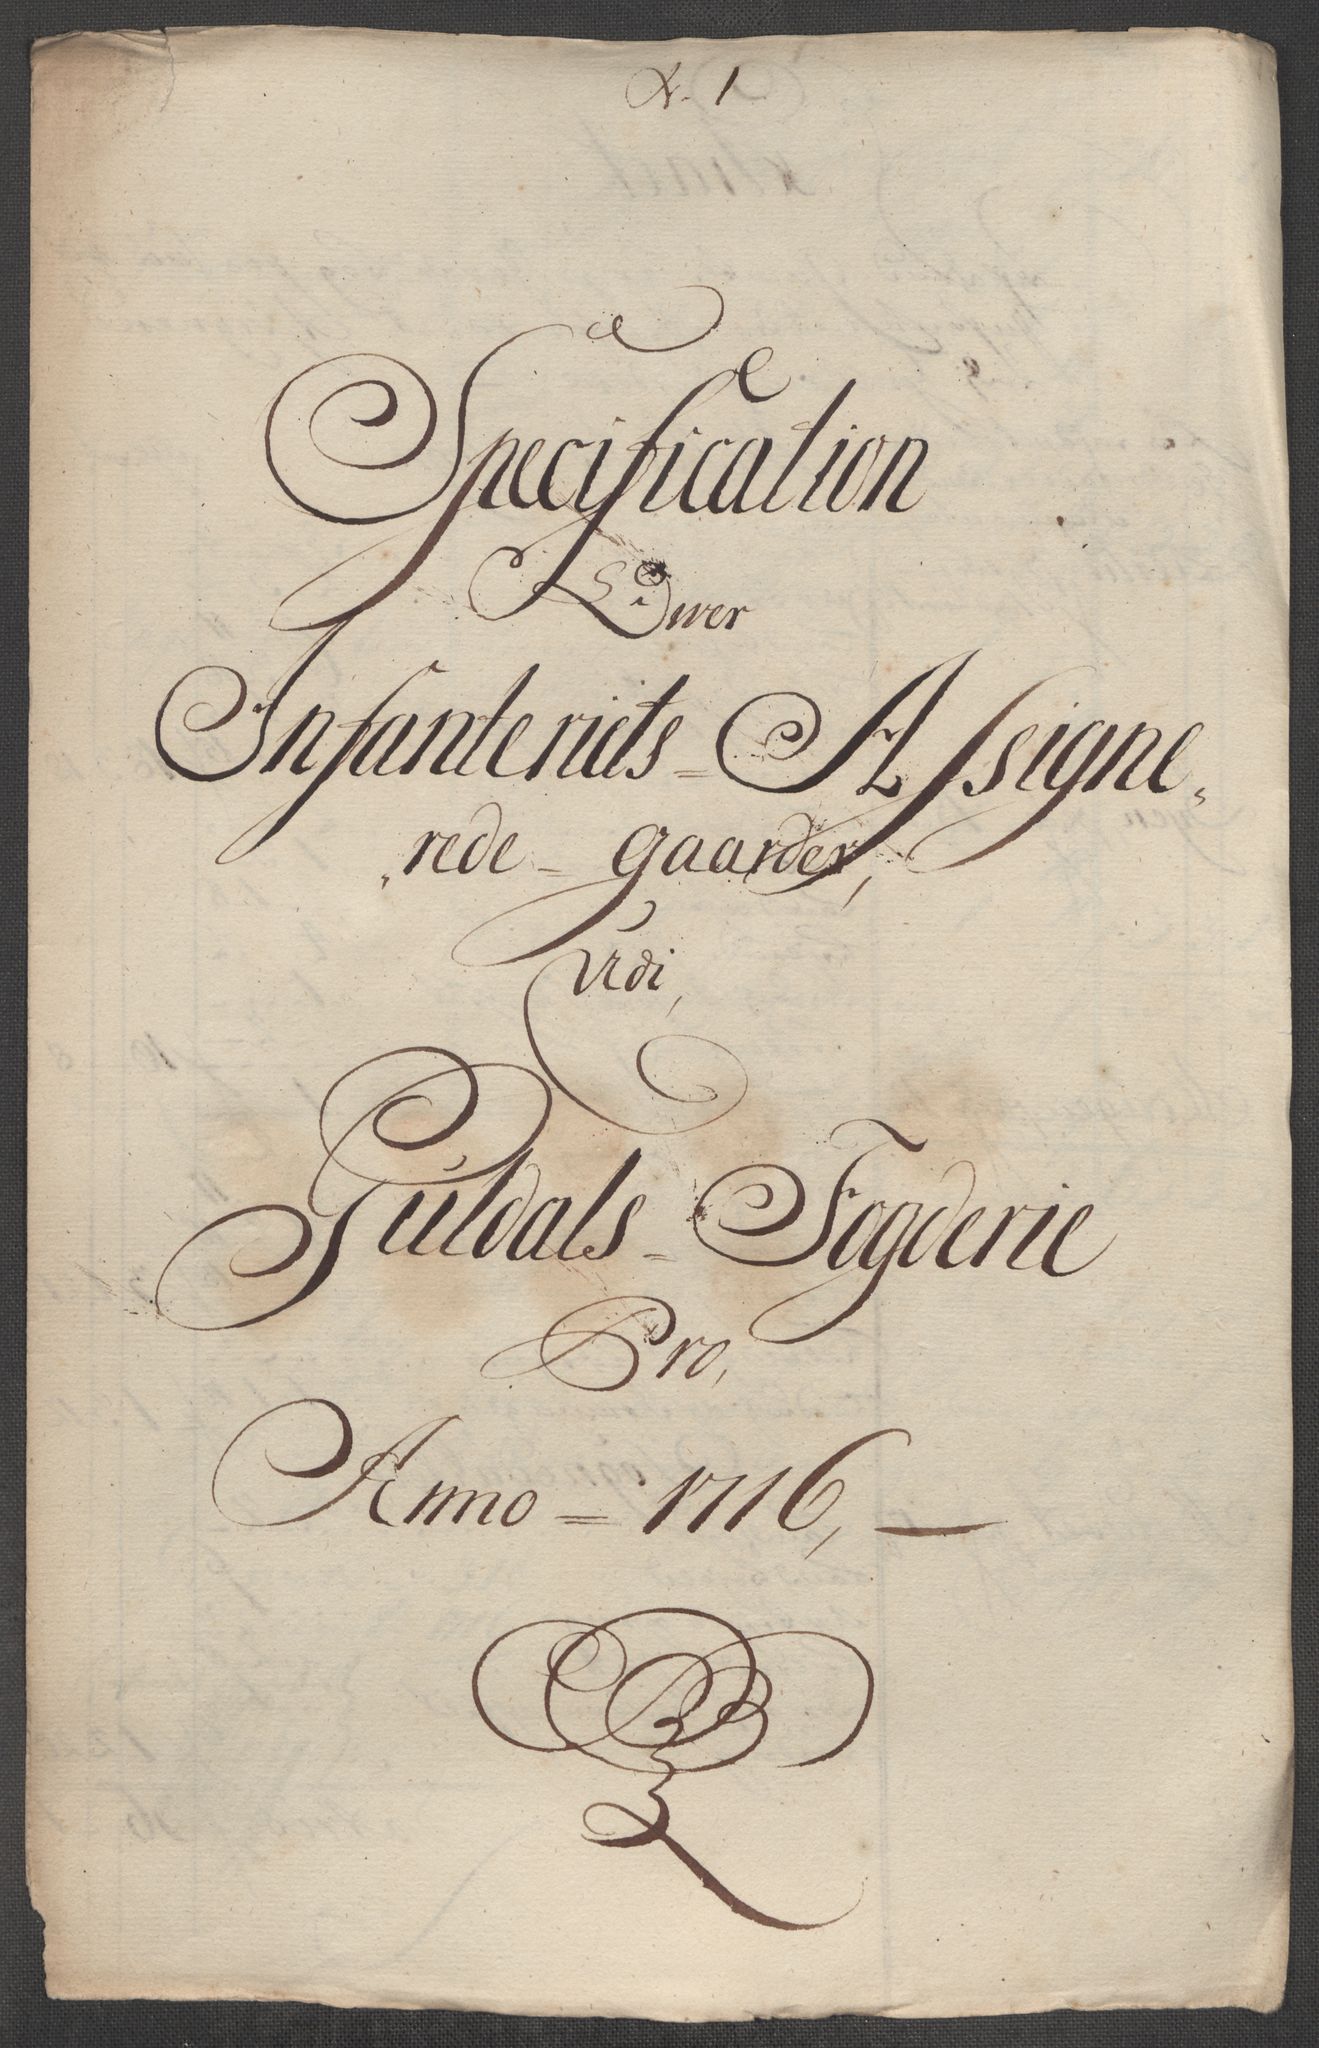 N. 1
Specification
Ower
Infanteriets = Assigne,
,rede = gaarder,
Udi,
Guldals = Fogderie
Pro,
Anno = 1716, —